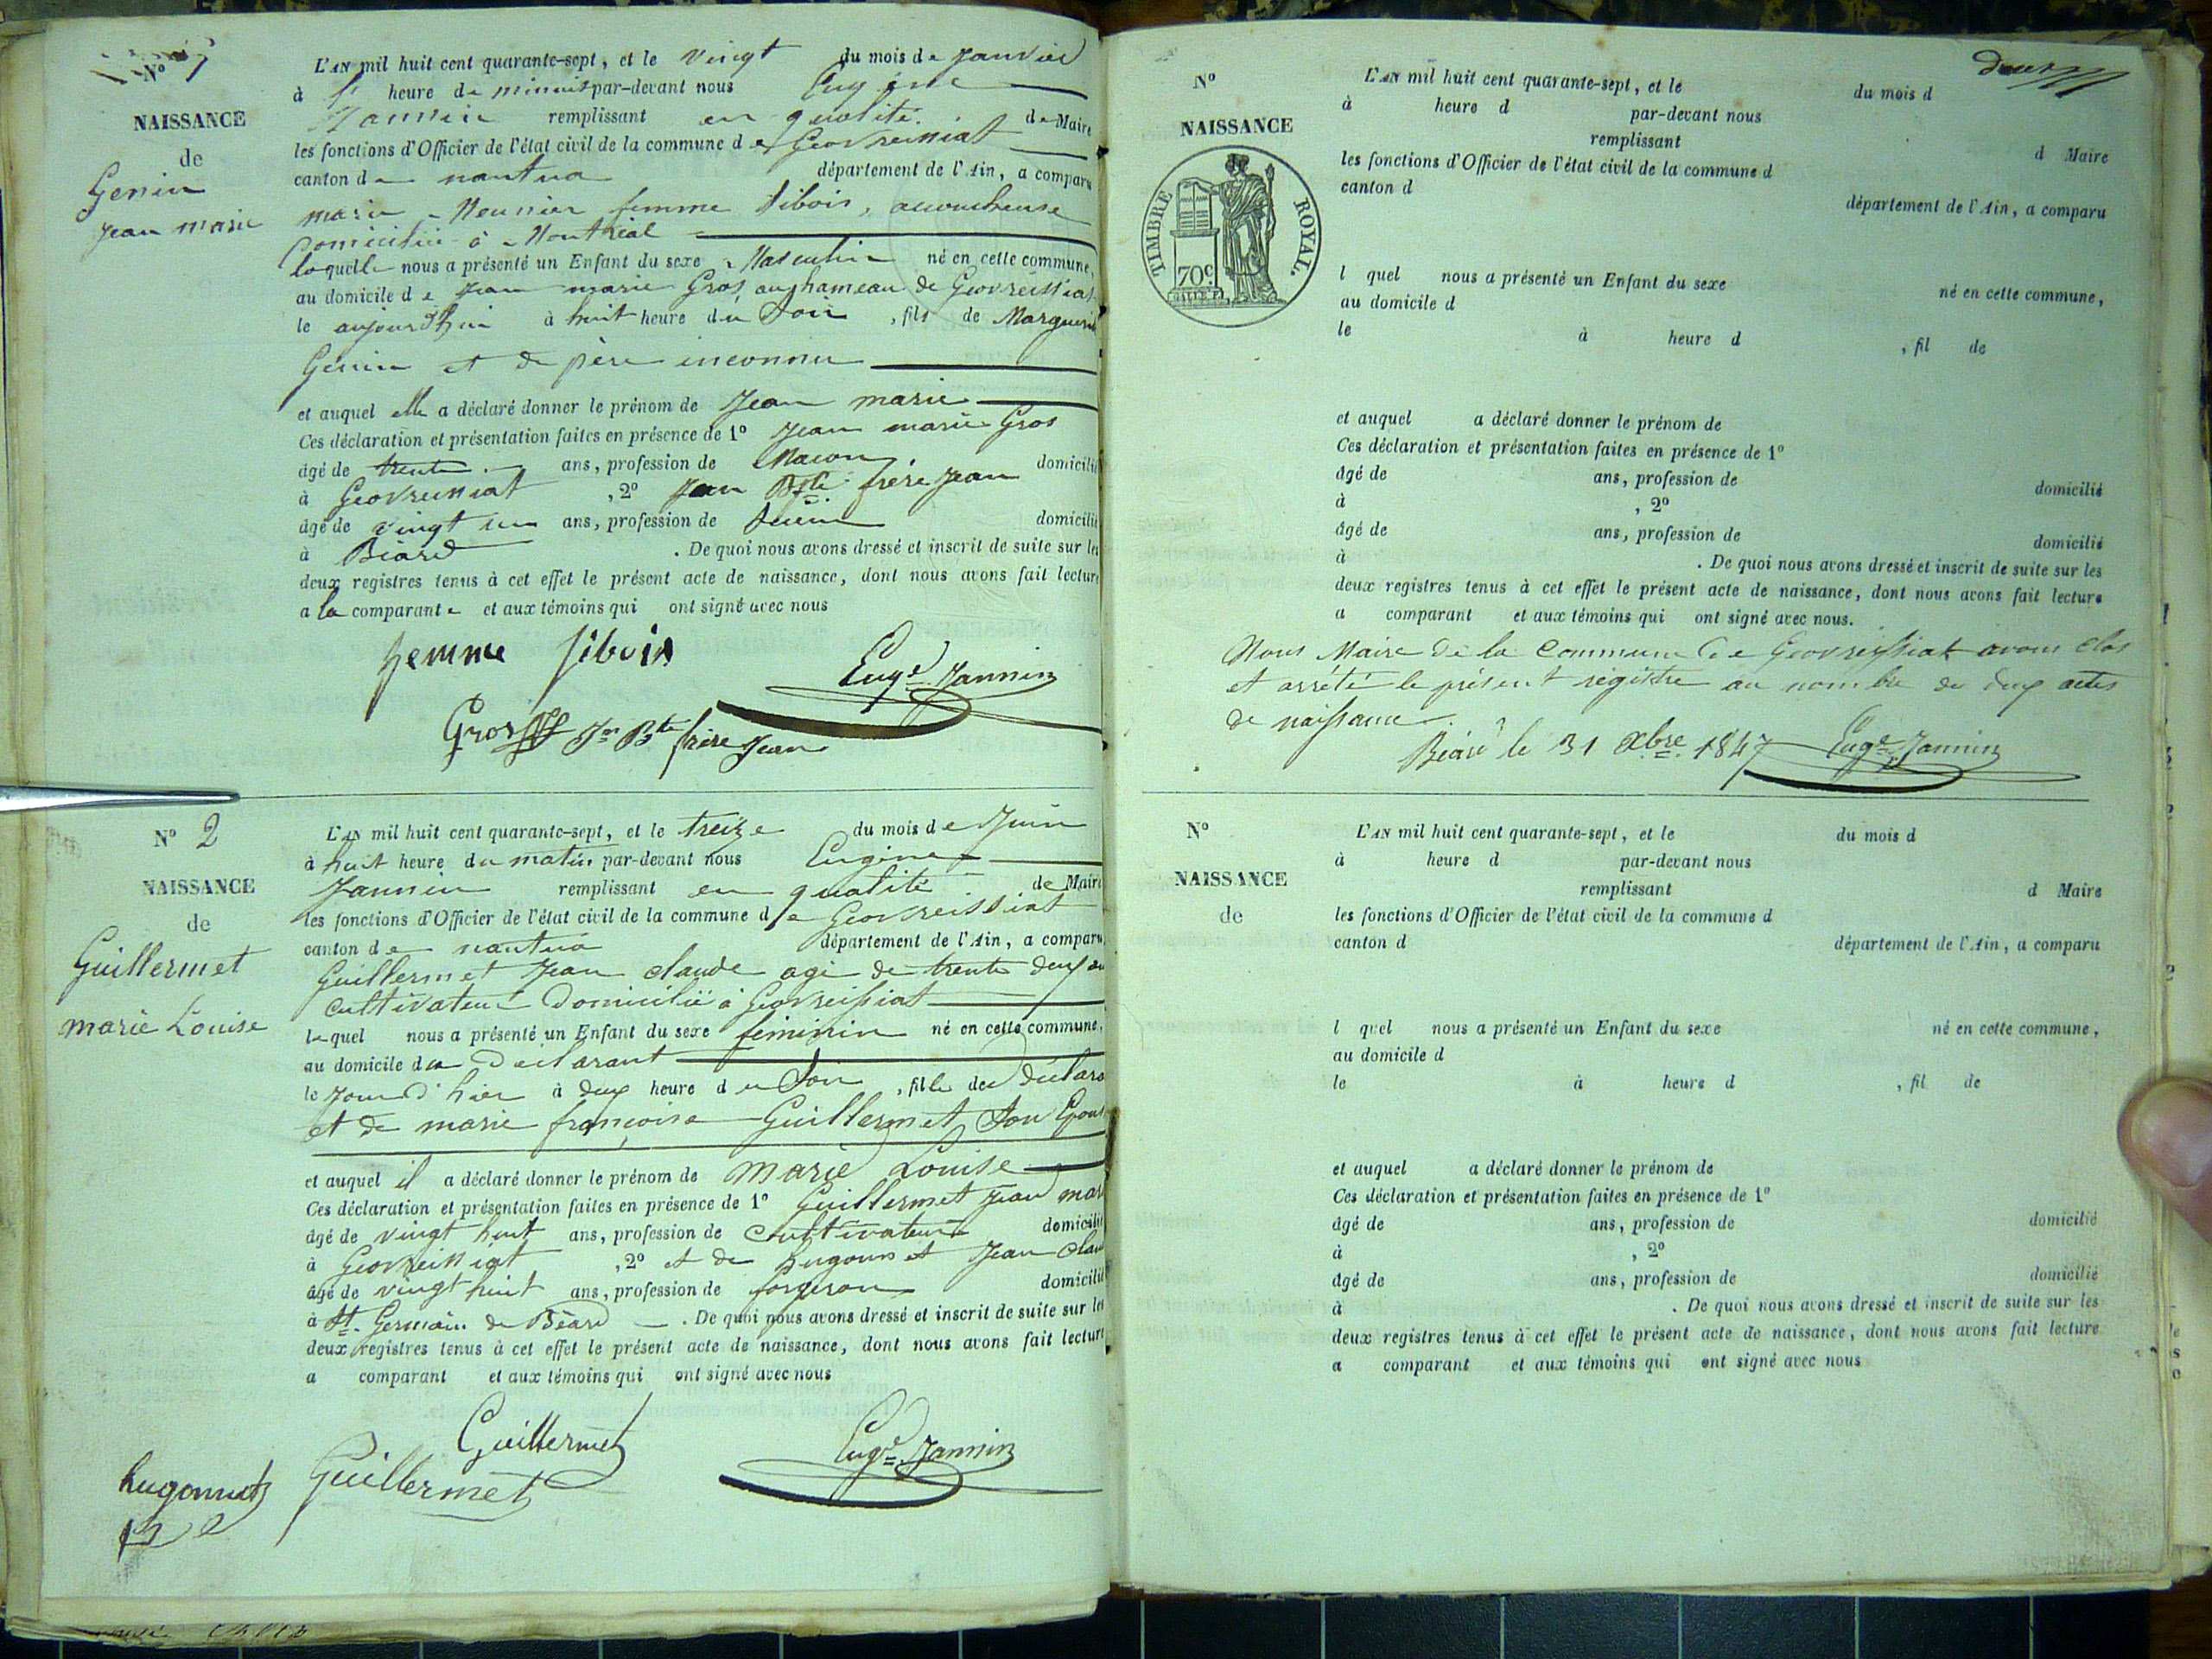 N° 1
NAISSANCE
de
Genin
Jean marie
L'AN mil huit cent quarante-sept, et le vingt du mois de Janvier
à heure de minuit par-devant nous Eugène
Jannin remplissant en qualité de Maire
les fonctions d'Officier de l'état civil de la commune de Géovreissiat
canton de nantua département de l'Ain, a comparu
marie Meunier femme Sibois, accoucheuse
Domiciliée à Montréal
laquelle nous a présenté un Enfant du sexe Masculin né en cette commune,
au domicile de Jean marie Gros, au hameau de Géovreissiat
le aujourd'hui à huit heure du Soir, fils de Marguerit
Genin et de père inconnu
et auquel elle a déclaré donner le prénom de Jean marie
Ces déclaration et présentation faites en présence de 1° Jean marie Gros
âgé de trente ans, profession de Macon domicilié
à Géovreissiat, 2° Jean Bte frère Jean
âgé de vingt un ans, profession de domicilié
à Béard. De quoi nous avons dressé et inscrit de suite sur les
deux registres tenus à cet effet le présent acte de naissance, dont nous avons fait lecture
a la comparante et aux témoins qui ont signé avec nous
femme Sibois
Euge Jannin
Gros Jn Bte frère Jean
N° 2
NAISSANCE
de
Guillermet
marie Louise
L'AN mil huit cent quarante-sept, et le treize du mois de Juin
à huit heure du matin par-devant nous Eugène
Jannin remplissant en qualité de Maire
les fonctions d'Officier de l'état civil de la commune de Géovreissiat
canton de nantua département de l'Ain, a comparu
Guillermet Jean claude agé de trente deux an
cultivateur Domicilié à Géovreissiat
lequel nous a présenté un Enfant du sexe féminin né en cette commune,
au domicile du Déclarant
le Jour d'hier à deux heure du Soir, fille du déclara
et de marie françoise Guillermet Son Epous
et auquel il a déclaré donner le prénom de Marie Louise
Ces déclaration et présentation faites en présence de 1° Guillermet Jean mar
âgé de vingt huit ans, profession de Cultivateur domicilié
à Géovreissiat, 2° et de hugonnet Jean Clau
âgé de vingt huit ans, profession de forgeron domicilié
à St. Germain de Béard. De quoi nous avons dressé et inscrit de suite sur les
deux registres tenus à cet effet le présent acte de naissance, dont nous avons fait lecture
a comparant et aux témoins qui ont signé avec nous
Guillermet
Euge Jannin
hugonnet Guillermet
deux
N°
NAISSANCE
TIMBRE ROYAL.
70c.
L'AN mil huit cent quarante-sept, et le du mois d
à heure d par-devant nous
remplissant d Maire
les fonctions d'Officier de l'état civil de la commune d
canton d département de l'Ain, a comparu
l quel nous a présenté un Enfant du sexe né en cette commune,
au domicile d
le à heure d, fil de
et auquel a déclaré donner le prénom de
Ces déclaration et présentation faites en présence de 1°
âgé de ans, profession de domicilié
à, 2°
âgé de ans, profession de domicilié
à. De quoi nous avons dressé et inscrit de suite sur les
deux registres tenus à cet effet le présent acte de naissance, dont nous avons fait lecture
a comparant et aux témoins qui ont signé avec nous.
Nous Maire de la Commune de Géovreissiat avons clos
et arrêté le présent régistre au nombre de deux actes
de naissance.
Béard le 31 Xbre 1847 Euge Jannin
N°
NAISSANCE
de
L'AN mil huit cent quarante-sept, et le du mois d
à heure d par-devant nous
remplissant d Maire
les fonctions d'Officier de l'état civil de la commune d
canton d département de l'Ain, a comparu
l quel nous a présenté un Enfant du sexe né en cette commune,
au domicile d
le à heure d, fil de
et auquel a déclaré donner le prénom de
Ces déclaration et présentation faites en présence de 1°
âgé de ans, profession de domicilié
à, 2°
âgé de ans, profession de domicilié
à. De quoi nous avons dressé et inscrit de suite sur les
deux registres tenus à cet effet le présent acte de naissance, dont nous avons fait lecture
a comparant et aux témoins qui ont signé avec nous